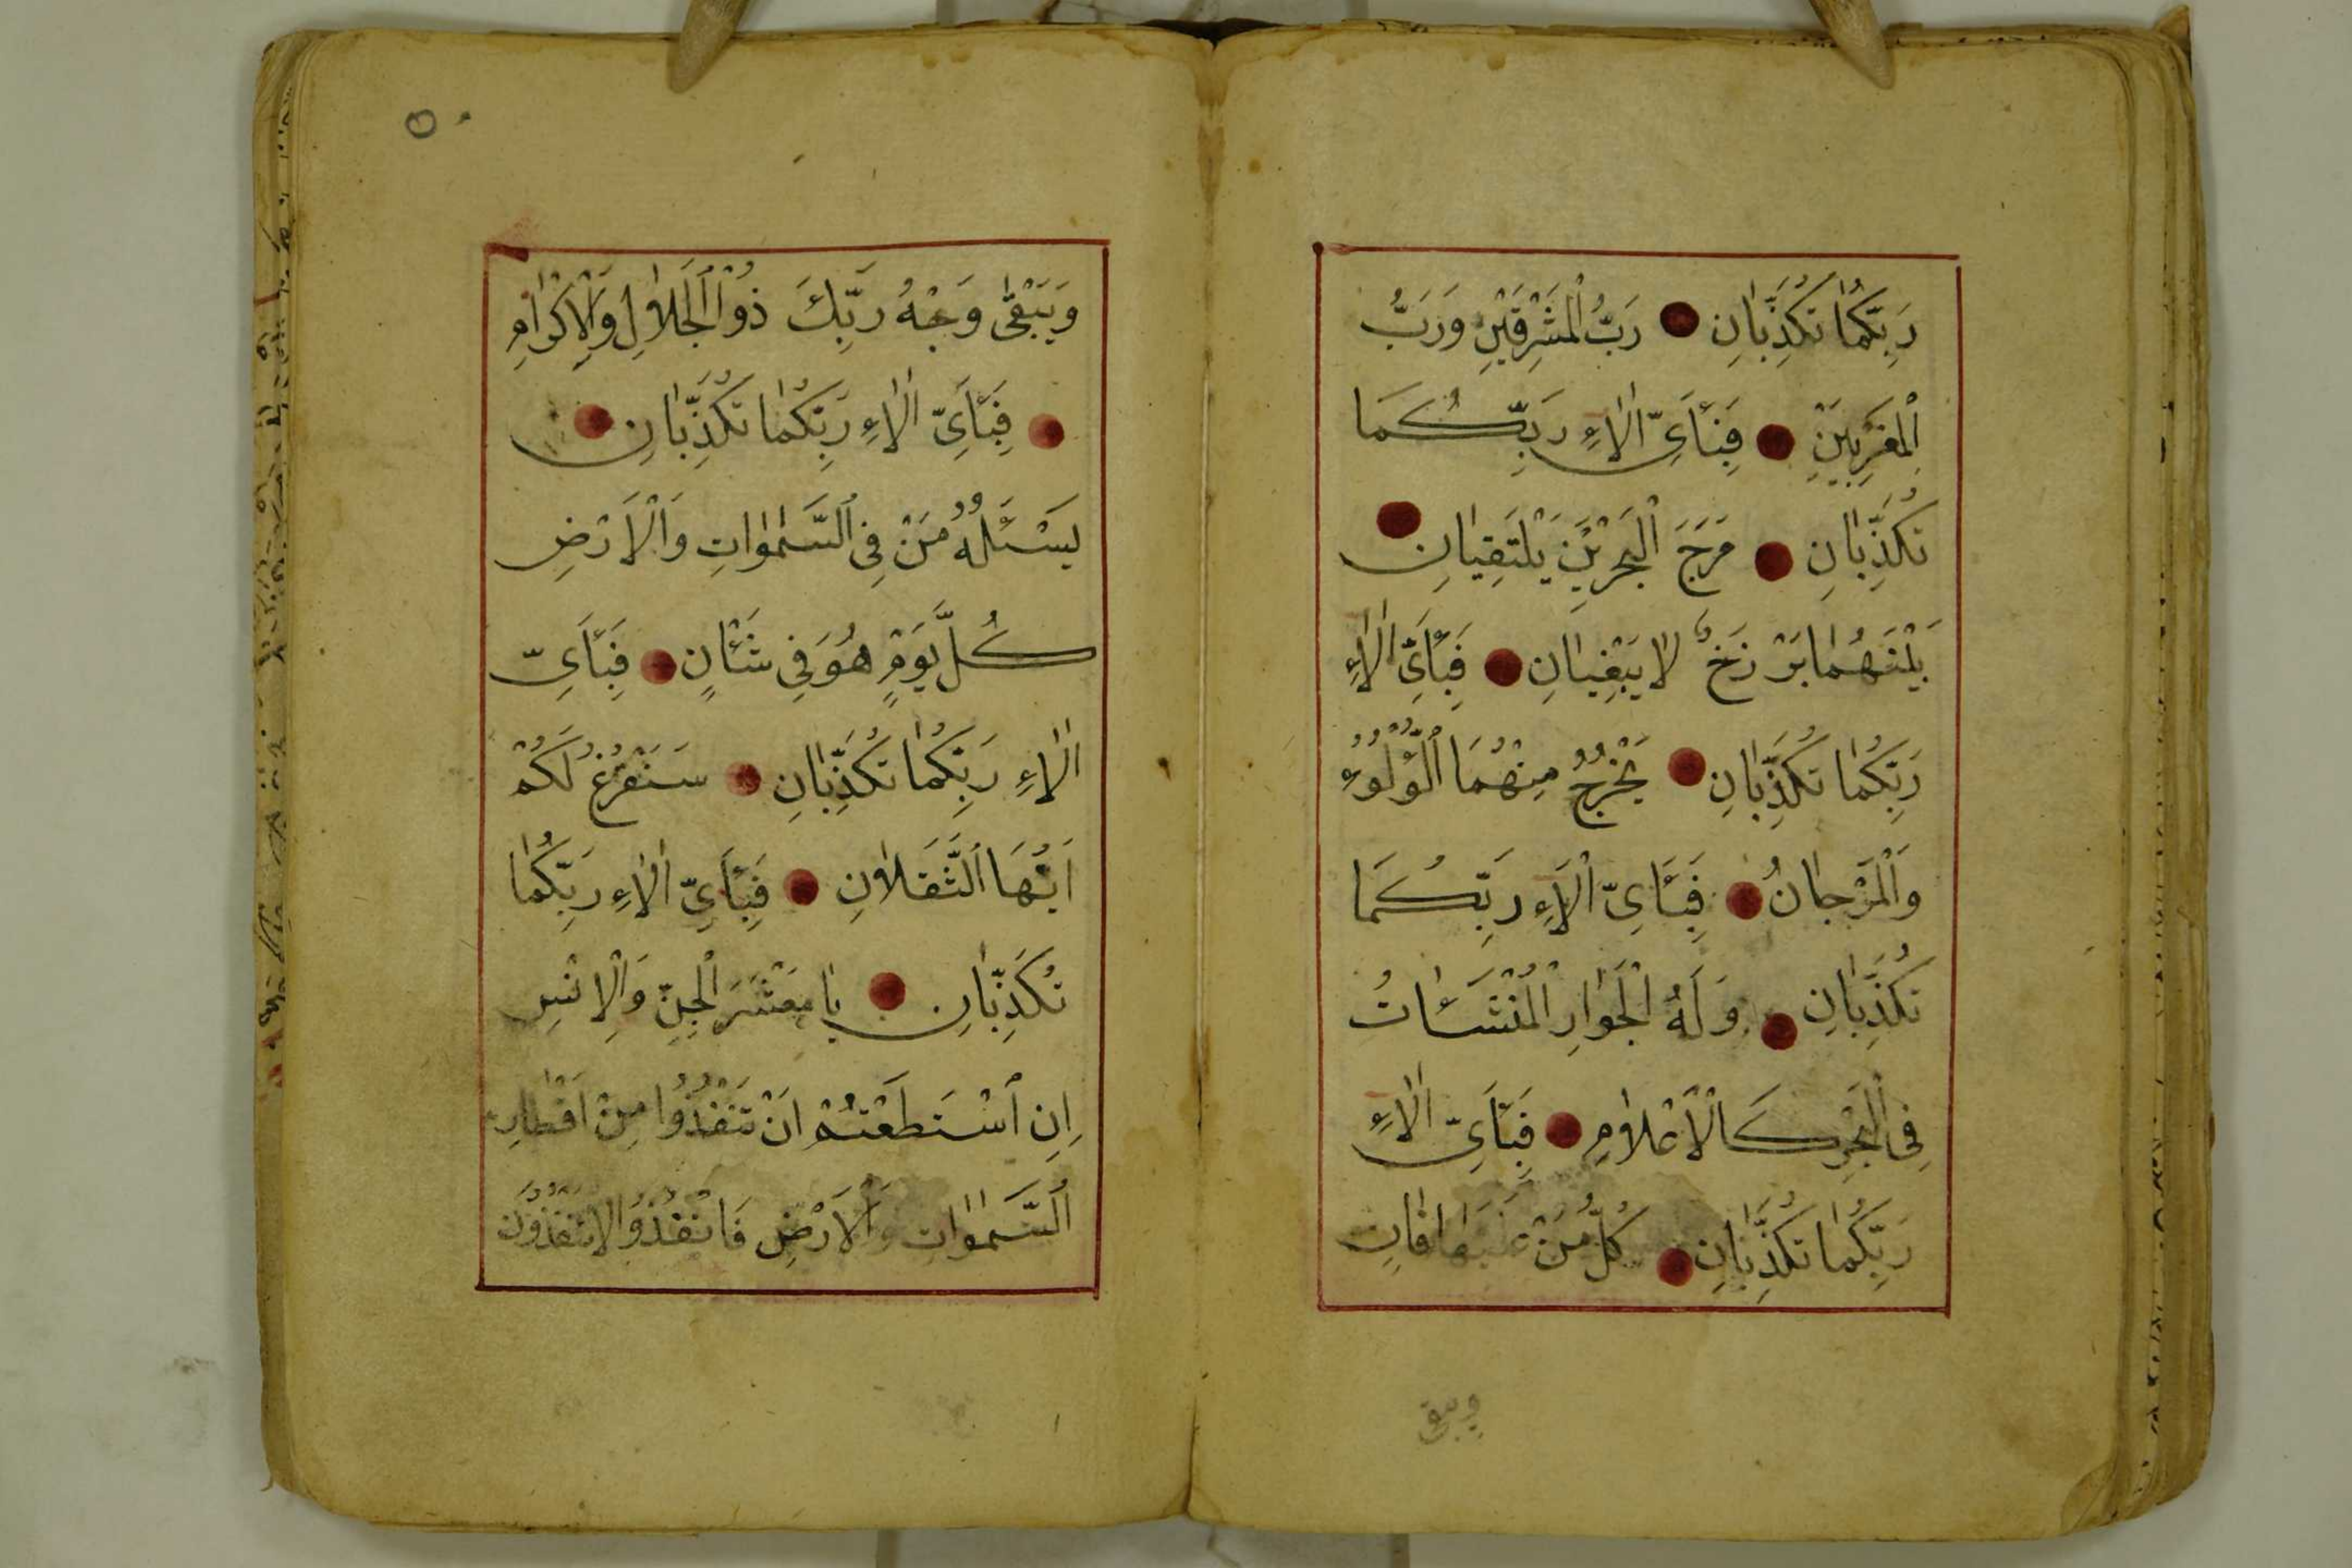 رَبِّكُمٰا تُكَذِّبٰانِ رَبُّ الْمَشْرِقَيْنِ وَرَبُّ
الْمَغْرِبَيْنِ فَبِئَايِّ اٰلاٰءِ رَبِّكُمَا
تُكَذِّبٰانِ مَرَجَ الْبَحْرَيْنِ يَلْتَقِيٰانِ
بَيْنَهُمٰا بَرْزَخٌ لاٰ يَبْغِيٰانِ فَبِئَايِّ اٰلاٰءِ
رَبِّكُمٰا تُكَذِّبٰانِ يَخْرُجُ مِنْهُمَا اللُّؤْلُؤُ
وَالْمَرْجٰانُ فَبِئَايِّ اٰلَاءِ رَبِّكُمَا
تُكَذِّبٰانِ وَلَهُ الْجَوٰارِ الْمُنْشَئٰاتُ
فِى الْبَحْرِ كَالْاَعْلاٰمِ فَبِئَايِّ اٰلاٰءِ
رَبِّكُمٰا تُكَذِّبٰانِ كُلُّ مَنْ عَلَيْهٰا فٰانٍ
ويبقى
وَيَبْقٰى وَجْهُ رَبِّكَ ذُوالْجَلاٰلِ وَالْاِكْرٰامِ
فَبِئَايِّ اٰلاٰءِ رَبِّكُمٰا تُكَذِّبٰانِ
يَسْئَلُهُ مَنْ فِى السَّمٰوٰاتِ وَالْاَرْضِ
كُلَّ يَوْمٍ هُوَ فِى شَئْانٍ فَبِئَايِّ
اٰلاٰءِ رَبِّكُمٰا تُكَذِّبٰانِ سَنَفْرُغُ لَكُمْ
اَيُّهَا الثَّقَلاٰنِ فَبِئَايِّ اٰلاٰءِ رَبِّكُمٰا
تُكَذِّبٰانِ يٰا مَعْشَرَ الْجِنِّ وَالْاِنْسِ
اِنِ اسْتَطَعْتُمْ اَنْ تَنْفُذُوا مِنْ اَقْطٰارِ
السَّمٰوٰاتِ وَالْاَرْضِ فَانْفُذُوا لاٰ تَنْفُذُونَ